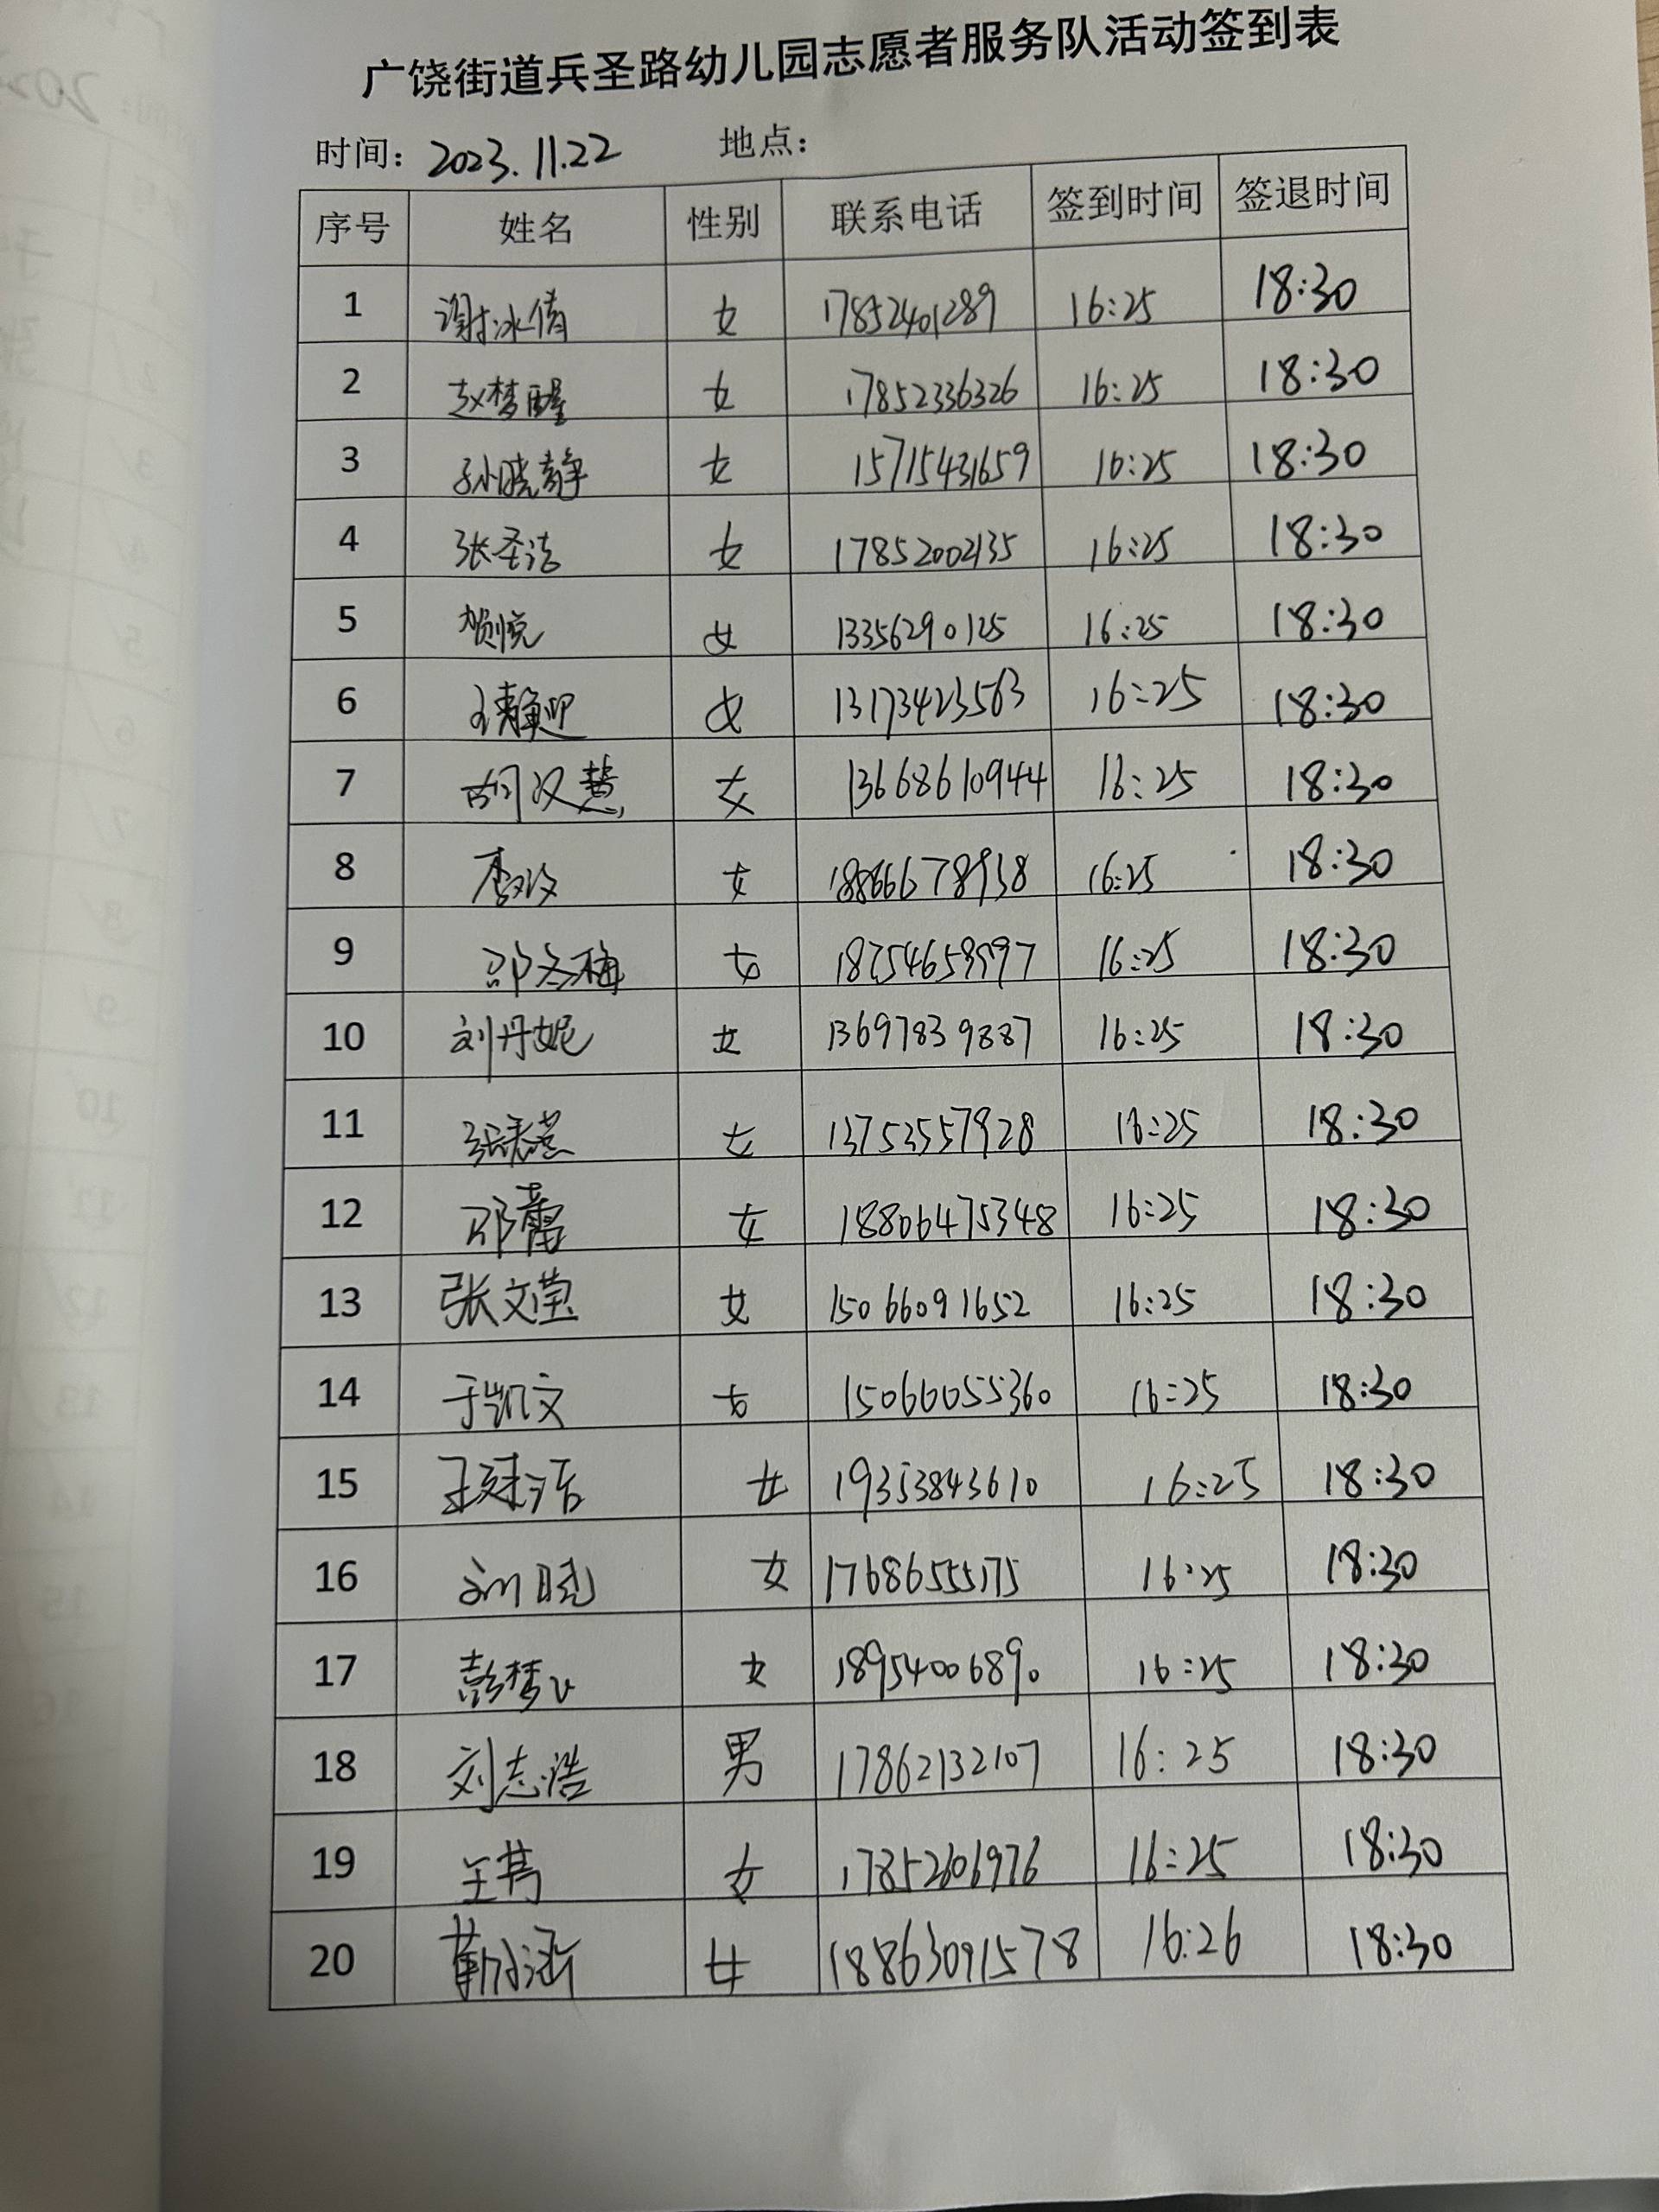 广饶街道兵圣路幼儿园志愿者服务队活动签到表
时间：2023.11.22 地点：
序号 姓名 性别 联系电话 签到时间 签退时间
1 谢冰倩 女 17852401289 16:25 18:30
2 赵梦醒 女 17852336326 16:25 18:30
3 孙晓静 女 15715431659 16:25 18:30
4 张圣洁 女 17852002135 16:25 18:30
5 贺悦 女 13356290125 16:25 18:30
6 王静迎 女 13173423563 16:25 18:30
7 胡汉慧 女 13668610944 16:25 18:30
8 李玟 女 18866678938 16:25 18:30
9 邵冬梅 女 16:25 18:30
10 刘丹妮 女 13697839887 16:25 18:30
11 女 13753557928 16:25 18:30
12 邵蕾 女 18806475348 16:25 18:30
13 张文莹 女 15066091652 16:25 18:30
14 于凯文 女 15066055360 16:25 18:30
15 女 19353843610 16:25 18:30
16 刘晓 女 17686555175 16:25 18:30
17 彭梦飞 女 18954006890 16:25 18:30
18 刘志浩 男 17862132107 16:25 18:30
19 女 17852606976 16:25 18:30
20 女 18863091578 16:26 18:30